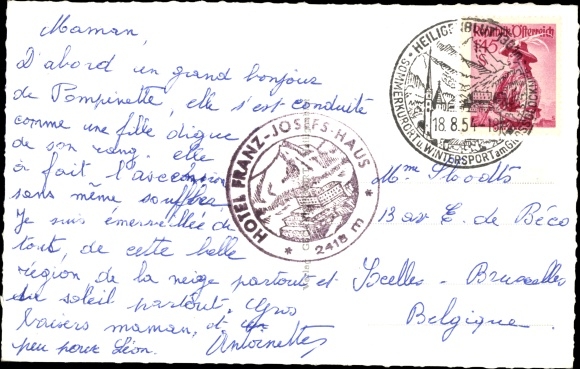 Maman,
D'abord un grand bonjour
de Pompinette, elle s'est conduite
comme une fille digne
de son rang. elle
a fait l'ascension
sans même souffler,
Je suis émerveillée de
tout, de cette belle
région de la neige partout et
du soleil partout. Gros
baisers maman, et un
peu pour Léon. Antoinette
HOTEL FRANZ-JOSEFS-HAUS
* 2418 m *
HEILIGENBLUT
SOMMERKURORT u. WINTERSPORT am
18.8.54
Republik Österreich
1.45
Mme Stoodts
13 av E. de Béco
Ixelles - Bruxelles
Belgique.